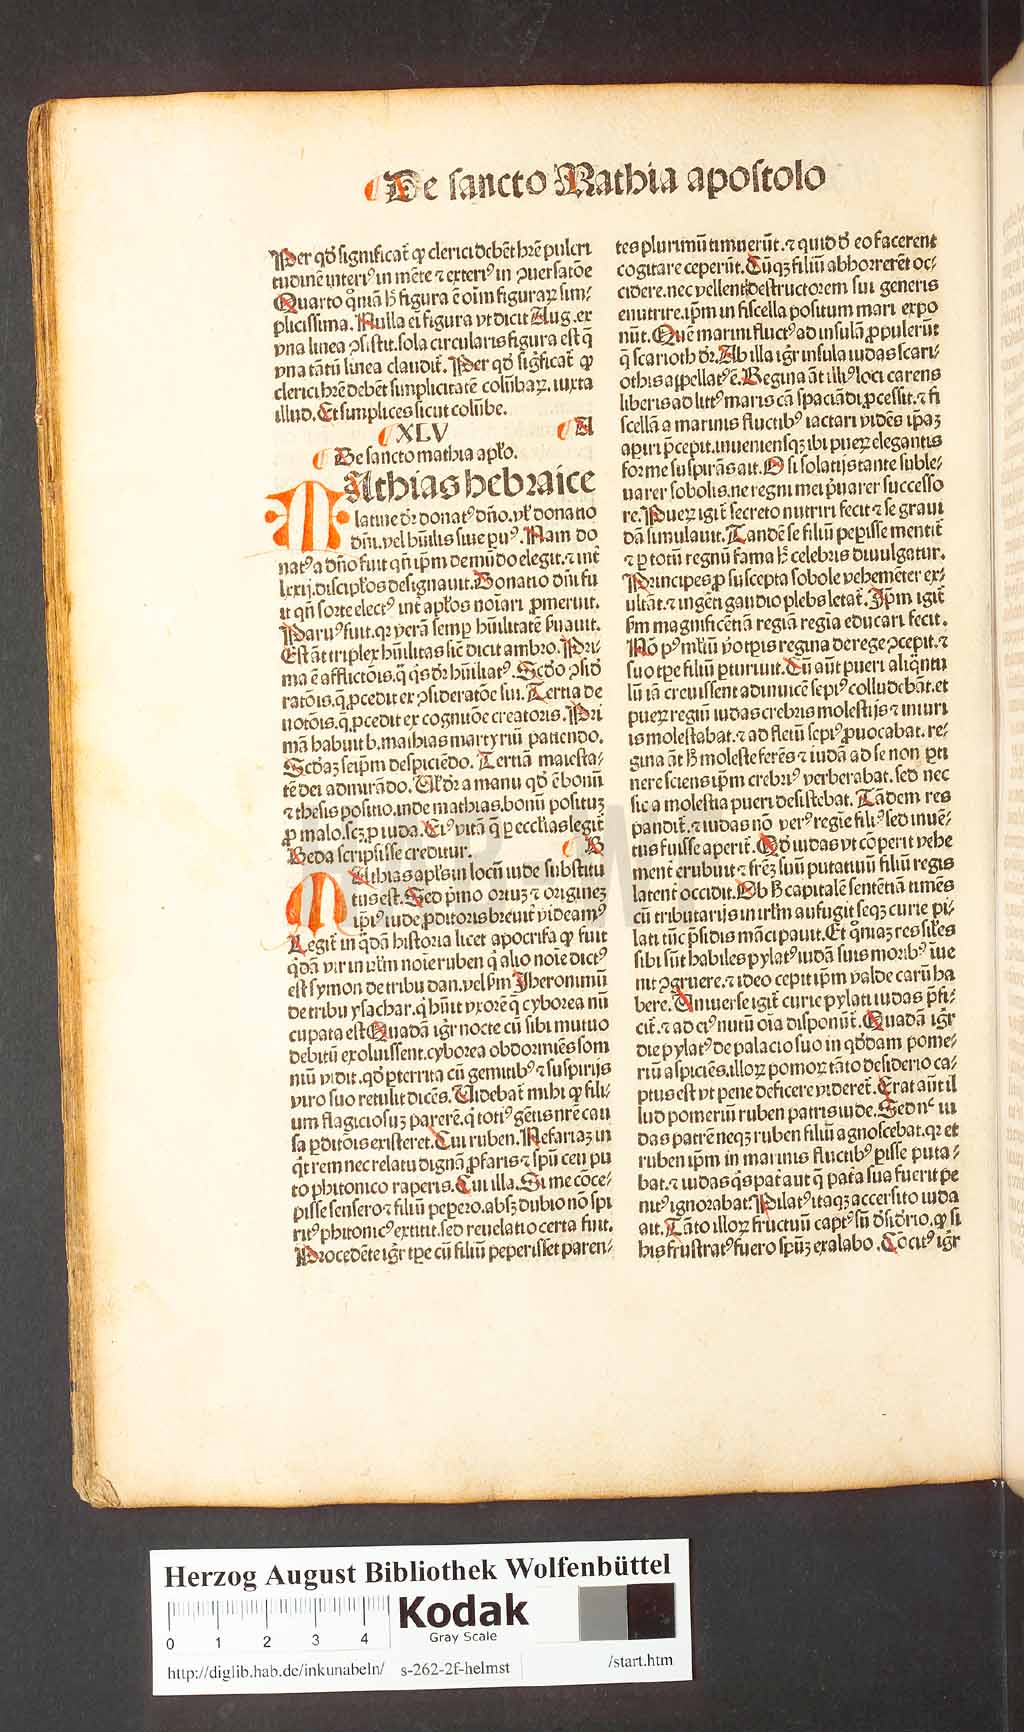 De sancto Mathia apostolo
Per qd̓ significat̄ ꝙ clerici debēt hr̄e pulcri
tudinē interiꝰ in mēte ⁊ exteriꝰ in ꝯuersatōe
Quarto qm̄a h̄ figura ē oīm figuraꝝ sim⸗
plicissima. Nulla ei̅ figura vt dicit Aug. ex
vna linea ꝯsistit. sola circularis figura est q̄
vna tātū linea claudit̄. Per qd̓ sigficat̄ ꝙ
clerici hr̄e debēt simplicitatē colūbaꝝ. iuxta
illud. Et simplices sicut colūbe.
XLV A
De sancto mathia apl̓o.
MAthias hebraice
latine dr̄ donatꝰ dn̄o. vl̓ donatio
dn̄i. vel hūilis siue puꝰ. Nam do
natꝰ a dn̄o fuit qn̄ ip̄m de mūdo elegit. ⁊ int̄
lxxij. discipl̓os designauit. Donatio dn̄i fu
it qn̄ sorte electꝰ int̄ apl̓os noīari ꝓmeruit.
Paruꝰ fuit. qꝛ verā semꝑ hūilitatē ẜuauit.
Est āt triplex hūilitas sic̄ dicit ambro. Pri⸗
ma ē afflictōis. q̄ q̓s dr̄ hūiliatꝰ. Scd̓o ꝯsid̓
ratōis. q̄ ꝓcedit ex ꝯsideratōe sui. Tertia de
uotōis. q̄ ꝓcedit ex cognitōe creatoris. Pri
mā habuit b. mathias martyriū patiendo.
Scd̓aꝫ seip̄m despiciēdo. Tertiā maiesta⸗
tē dei admirādo. Vl̓ dr̄ a manu qd̓ ē bonū
⁊ thesis positio. inde mathias. bonū positus
ꝓ malo. scꝫ ꝓ iuda. Eiꝰ vitā q̄ ꝑ eccl̓ias legit̄
Beda scripsisse creditur. B
MAthias apl̓s in locū iude substitu
tus est. Sed pͥmo ortuꝫ ⁊ origineꝫ
ip̄iꝰ iude ꝓditoris breuit̄ videamꝰ
Legit̄ in q̄dā historia licet apocrifa ꝙ fuit
q̓dā vir in irl̓m noīe ruben q̓ alio noīe dictꝰ
est symon de tribu dan. vel ẜm Jheronimū
de tribu ysachar. q̓ hūit vxorē q̄ cyborea nū
cupata est Quadā igr̄ nocte cū sibi mutuo
debitū exoluissent. cyborea obdormiēs som
niū vidit. qd̓ ꝑterrita cū gemitibꝰ ⁊ suspirijs
viro suo retulit dicēs. Videbat̄ mihi ꝙ fili⸗
um flagiciosuꝫ parerē. q̓ totiꝰ gētis nr̄e cau
sa ꝑditōis existeret. Cui ruben. Nefariaꝫ in
q̓t rem nec relatu dignā ꝓfaris ⁊ spū ceu pu
to phitonico raperis. Cui illa. Si me cōce⸗
pisse sensero ⁊ filiū pepero. absꝫ dubio nō spi
ritꝰ phitonicꝰ extitit. sed reuelatio certa fuit.
Procedēte igr̄ tp̄e cū filiū peperisset paren⸗
tes plurimū timuerūt. ⁊ quid d̓ eo facerent
cogitare ceperūt. Cūqꝫ filiū abhorrerēt oc⸗
cidere. nec vellent destructorem sui generis
enutrire. ip̄m in fiscella positum mari expo
nūt. Quē marini fluctꝰ ad insulā ꝓpulerūt
q̄ scarioth dr̄. Ab illa igr̄ insula iudas scari⸗
othis appellatꝰ ē. Regina āt illiꝰ loci carens
liberis ad littꝰ maris cā spaciādi ꝓcessit. ⁊ fi
scellā a marinis fluctibꝰ iactari vidēs ip̄aꝫ
aperiri p̄cepit. inueniensqꝫ ibi pueꝝ elegantis
forme suspirās ait. O si solatijs tante suble⸗
uarer sobolis. ne regni mei pͥuarer successo
re. Pueꝝ igit̄ secreto nutriri fecit ⁊ se graui
dā simulauit. Tandē se filiū peperisse mentit̄
⁊ ꝑ totū regnū fama h̄ celebris diuulgatur.
Princeps ꝓ suscepta sobole vehemēter ex⸗
ultat. ⁊ ingēti gaudio plebs letat̄. Ip̄m igit̄
ẜm magnificētiā regiā regia educari fecit.
Nō pꝰ ml̓tū v̓o tp̄is regina de rege ꝯcepit. ⁊
suo tp̄e filiū ꝑturiuit. Cū aūt pueri aliq̄ntu
lū iā creuissent adinuicē sepiꝰ colludebāt. et
pueꝝ regiū iudas crebris molestijs ⁊ iniuri
is molestabat. ⁊ ad fletū sepiꝰ ꝓuocabat. re⸗
gina āt h̄ moleste ferēs ⁊ iudā ad se non ꝑti
nere sciens ip̄m crebriꝰ verberabat. sed nec
sic a molestia pueri desistebat. Tādem res
pandit̄. ⁊ iudas nō verꝰ regie filiꝰ sed inuē⸗
tus fuisse aperit̄. Qd̓ iudas vt cōperit vehe
ment̄ erubuit ⁊ fr̄eꝫ suū putatiuū filiū regis
latent̄ occidit. Ob h̄ capitalē sentētiā timēs
cū tributarijs in irl̓m aufugit seqꝫ curie pi⸗
lati tūc p̄sidis mācipauit. Et qm̄aꝫ res sil̓es
sibi sūt habiles pylatꝰ iudā suis moribꝰ īue
nit ꝯgruere. ⁊ ideo cepit ip̄m valde carū ha
bere. Uniuerse igit̄ curie pylati iudas p̄fi⸗
cit̄. ⁊ ad eiꝰ nutū oīa disponūt̄. Quadā igr̄
die pylatꝰ de palacio suo in qd̓dam pome⸗
riū aspiciēs. illoꝝ pomoꝝ tāto desiderio ca⸗
ptus est vt pene deficere videret̄. Erat aūt il
lud pomeriū ruben patris iude. Sed nͨ iu
das patrē neqꝫ ruben filiū agnoscebat. qꝛ et
ruben ip̄m in marinis fluctibꝰ ꝑisse puta⸗
bat. ⁊ iudas q̓s pat̄ aut q̄ pat̓a sua fuerit pe
nitꝰ ignorabat. Pilatꝰ itaqꝫ accersito iuda
ait. Tāto illoꝝ fructuū captꝰ sū d̓sid̓rio. ꝙ si
his frustratꝰ fuero spūꝫ exalabo. Cōcitꝰ igr̄
Herzog August Bibliothek Wolfenbüttel
0 1 2 3 4
Kodak
Gray Scale
http://diglib.hab.de/inkunabeln/ s-262-2f-helmst /start.htm